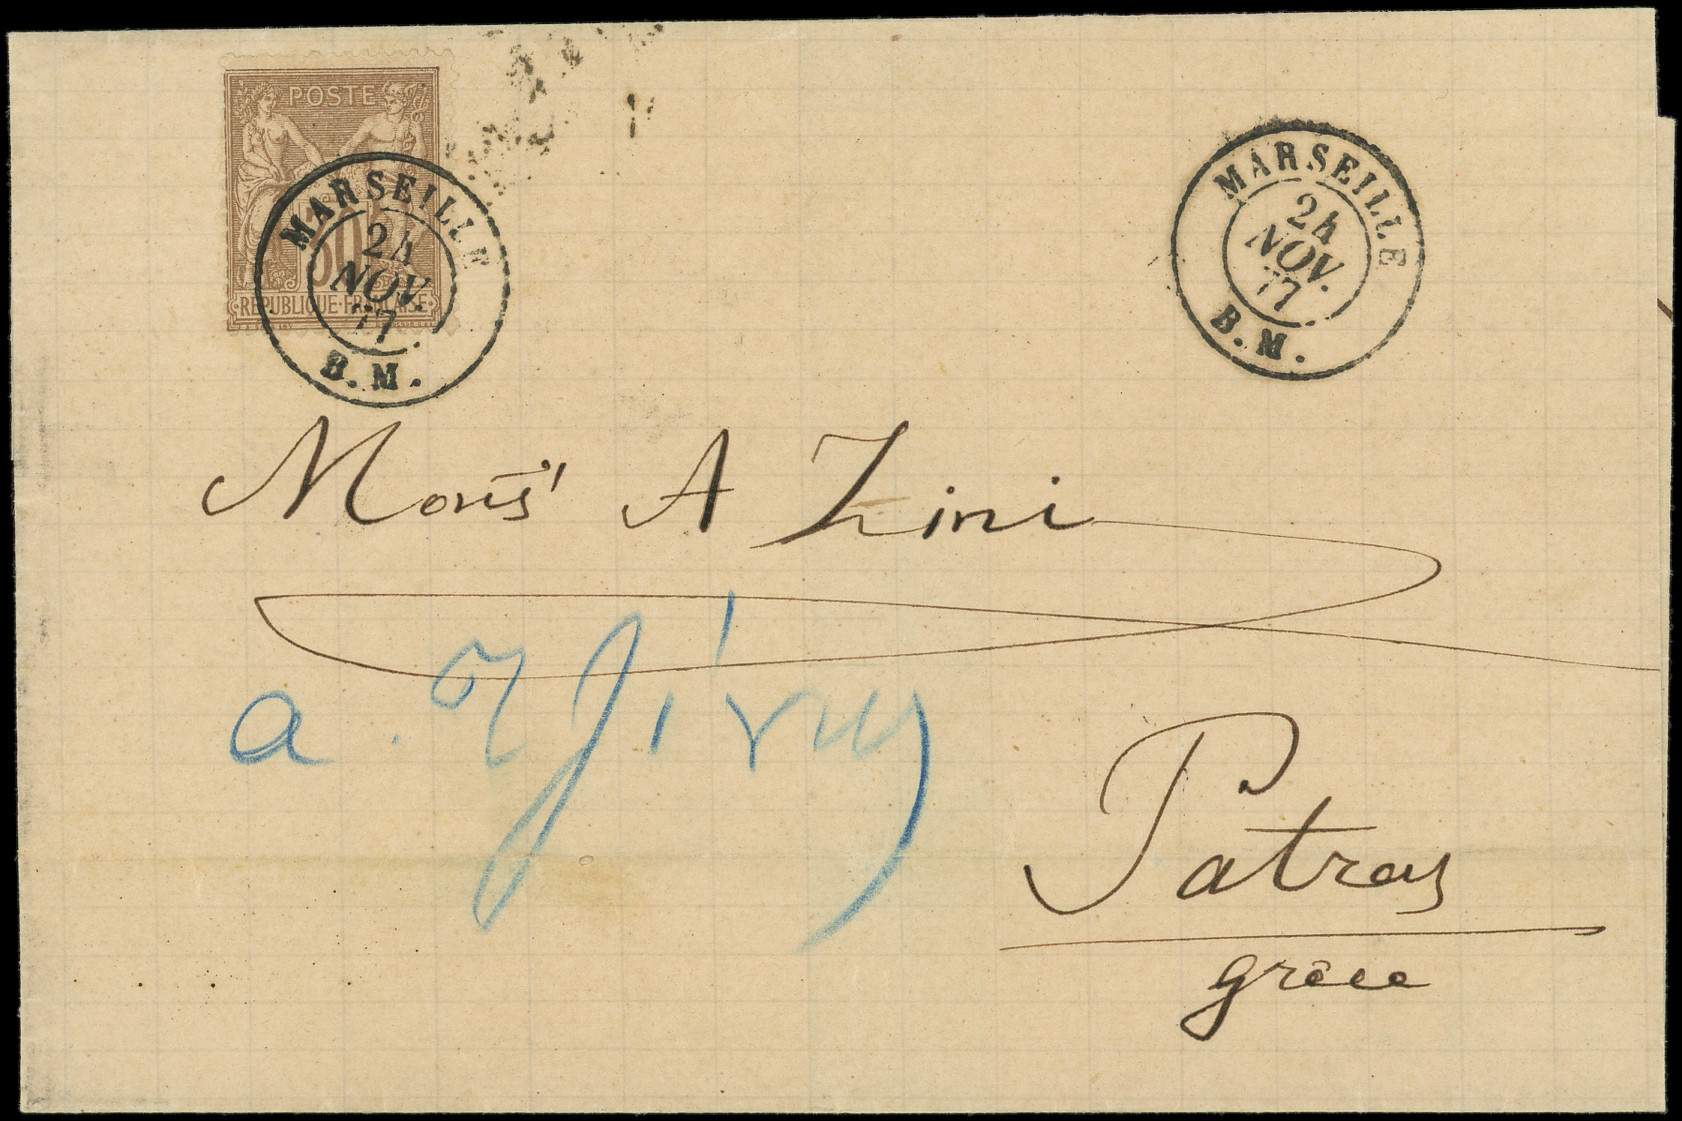 POSTE
30
REPUBLIQUE·FRANÇAISE
MARSEILLE
24
NOV.
77
B.M.
MARSEILLE
24
NOV.
77
B.M.
Monsr A Zini
Patras
grèce